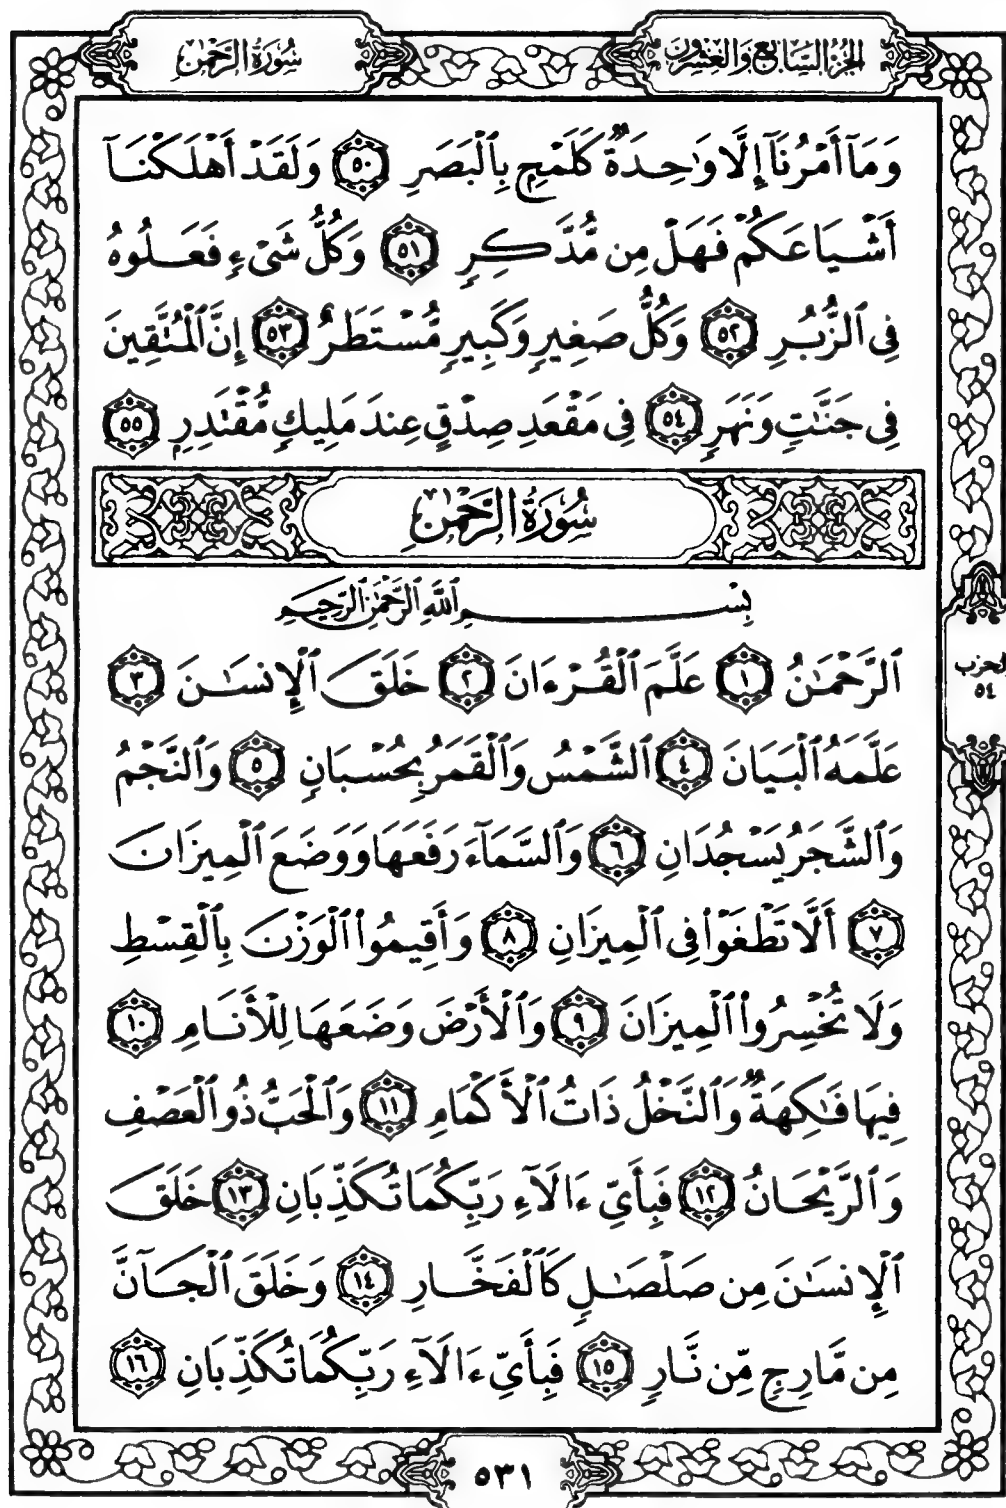 الجزء السابع والعشرون
سورة الرحمن
وَمَآ أَمْرُنَآ إِلَّا وَٰحِدَةٌ كَلَمْحٍۭ بِٱلْبَصَرِ ٥٠ وَلَقَدْ أَهْلَكْنَآ
أَشْيَاعَكُمْ فَهَلْ مِن مُّدَّكِرٍ ٥١ وَكُلُّ شَىْءٍ فَعَلُوهُ
فِى ٱلزُّبُرِ ٥٢ وَكُلُّ صَغِيرٍ وَكَبِيرٍ مُّسْتَطَرٌ ٥٣ إِنَّ ٱلْمُتَّقِينَ
فِى جَنَّٰتٍ وَنَهَرٍ ٥٤ فِى مَقْعَدِ صِدْقٍ عِندَ مَلِيكٍ مُّقْتَدِرٍۭ ٥٥
سُورَةُ الرَّحْمٰنِ
بِسْمِ ٱللَّهِ ٱلرَّحْمَٰنِ ٱلرَّحِيمِ
ٱلرَّحْمَٰنُ ١ عَلَّمَ ٱلْقُرْءَانَ ٢ خَلَقَ ٱلْإِنسَٰنَ ٣
عَلَّمَهُ ٱلْبَيَانَ ٤ ٱلشَّمْسُ وَٱلْقَمَرُ بِحُسْبَانٍ ٥ وَٱلنَّجْمُ
وَٱلشَّجَرُ يَسْجُدَانِ ٦ وَٱلسَّمَآءَ رَفَعَهَا وَوَضَعَ ٱلْمِيزَانَ
٧ أَلَّا تَطْغَوْا۟ فِى ٱلْمِيزَانِ ٨ وَأَقِيمُوا۟ ٱلْوَزْنَ بِٱلْقِسْطِ
وَلَا تُخْسِرُوا۟ ٱلْمِيزَانَ ٩ وَٱلْأَرْضَ وَضَعَهَا لِلْأَنَامِ ١٠
فِيهَا فَٰكِهَةٌ وَٱلنَّخْلُ ذَاتُ ٱلْأَكْمَامِ ١١ وَٱلْحَبُّ ذُو ٱلْعَصْفِ
وَٱلرَّيْحَانُ ١٢ فَبِأَىِّ ءَالَآءِ رَبِّكُمَا تُكَذِّبَانِ ١٣ خَلَقَ
ٱلْإِنسَٰنَ مِن صَلْصَٰلٍ كَٱلْفَخَّارِ ١٤ وَخَلَقَ ٱلْجَآنَّ
مِن مَّارِجٍ مِّن نَّارٍ ١٥ فَبِأَىِّ ءَالَآءِ رَبِّكُمَا تُكَذِّبَانِ ١٦
الحزب
٥٤
٥٣١